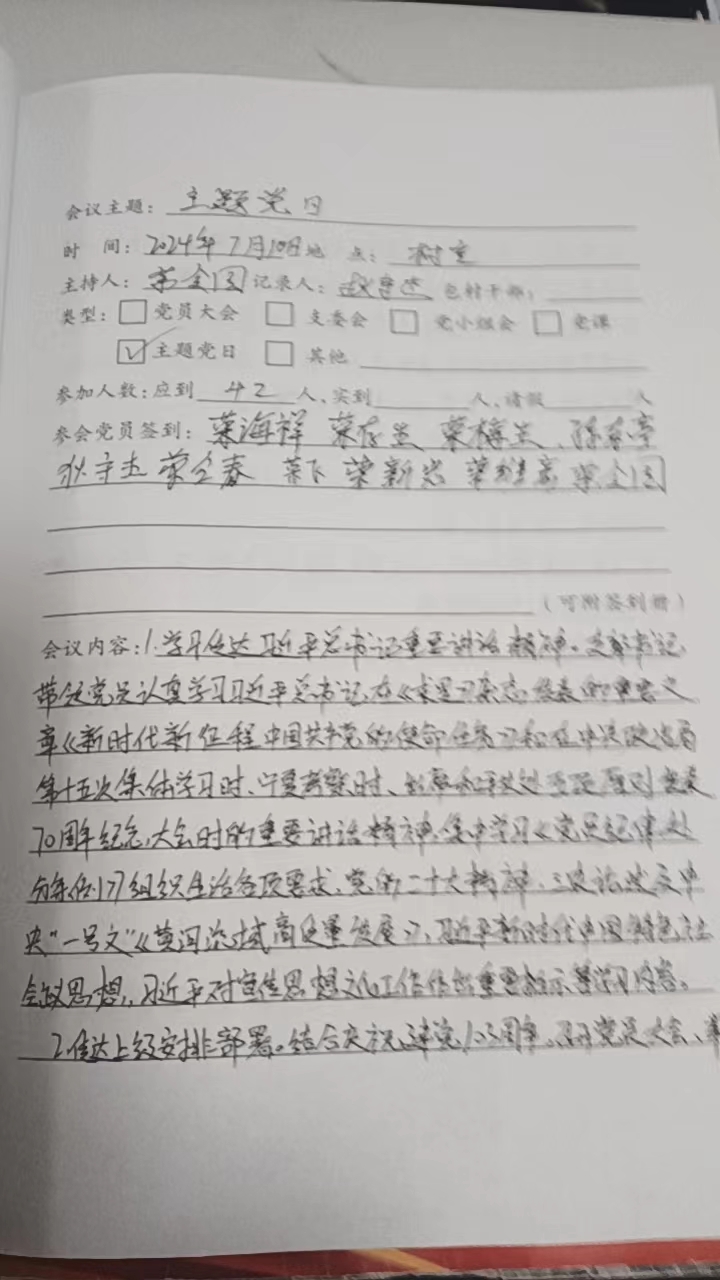 会议主题：主题党日
时 间：2024年7月10日 地 点：村室
主持人： 记录人： 包村干部：
类型：□党员大会 □支委会 □党小组会 □党课
☑主题党日 □其他
参加人数：应到 42 人、实到 人、请假 人
参会党员签到：荣海祥 荣存生 荣梅生
狄守志 荣全春 荣飞 荣新岩 荣全国
（可附签到册）
会议内容：1.学习传达习近平总书记重要讲话精神。支部书记
带领党员认真学习习近平总书记在《求是》杂志发表的重要文
章《新时代新征程中国共产党的使命任务》和在中央政治局
第十五次集体学习时、宁夏考察时、和平共处五项原则发表
70周年纪念大会时的重要讲话精神，集中学习《党员纪律处
分条例》组织生活各项要求、党的二十大精神、中
央“一号文”《黄河流域高质量发展》，习近平新时代中国特色社
会议思想，习近平对宣传思想文化工作作出重要指示等学习内容。
2.传达上级安排部署。结合庆祝建党103周年，召开党员大会、